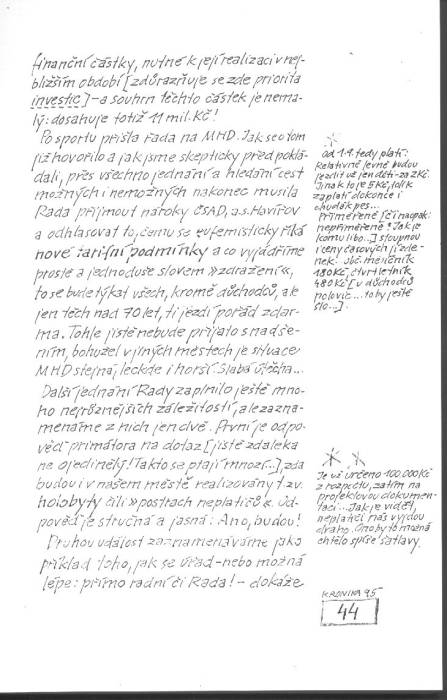 finanční částky, nutné k její realizaci v nej-
bližším období [zdůrazňuje se zde priorita
investic] – a souhrn těchto částek je nema-
lý: dosahuje totiž 11 mil. Kč!
Po sportu přišla řada na MHD. Jak se o tom
již hovořilo a jak jsme skepticky předpoklá-
dali, přes všechno jednání a hledání cest
možných i nemožných nakonec musila
Rada přijmout nároky ČSAD, a.s. Havířov
a odhlasovat to, čemu se eufemisticky říká
nové tarifní podmínky a co vyjádříme
prostě a jednoduše slovem »zdražení«,
to se bude týkat všech, kromě důchodců, ale
jen těch nad 70 let, ti jezdí pořád zdar-
ma. Tohle jistě nebude přijato s nadše-
ním, bohužel v jiných městech je situace
MHD stejná, leckde i horší. Slabá útěcha...
Další jednání Rady zaplnilo ještě mno-
ho nejrůznějších záležitostí, ale zazna-
menáme z nich jen dvě. První je odpo-
věď primátora na dotaz [jistě zdaleka
ne ojedinělý! Takto se ptají mnozí...] zda
budou i v našem městě realizovány t.zv.
holobyty čili »postrach neplatičů«. Od-
pověď je stručná a jasná: Ano, budou!
Druhou událost zaznamenáváme jako
příklad toho, jak se úřad – nebo možná
lépe: přímo radní či Rada! – dokáže
*
Od 1.4. tedy platí:
Relativně levně budou
jezdit už jen děti – za 2 Kč.
Jinak to je 5 Kč, tolik
zaplatí dokonce i
chudák pes...
Přiměřeně [či naopak:
nepřiměřeně? Jak je
komu libo...] stoupnou
i ceny časových jízde-
nek: obč. měsíčník
180 Kč, čtvrtletník
480 Kč [u důchodců
polovic... to by ještě
šlo...].
* *
Je už určeno 100.000 Kč
z rozpočtu, zatím na
projektovou dokumen-
taci... Jak je vidět,
neplatiči nás vyjdou
draho. Ono by to možná
chtělo spíše šatlavy.
KRONIKA 95
44